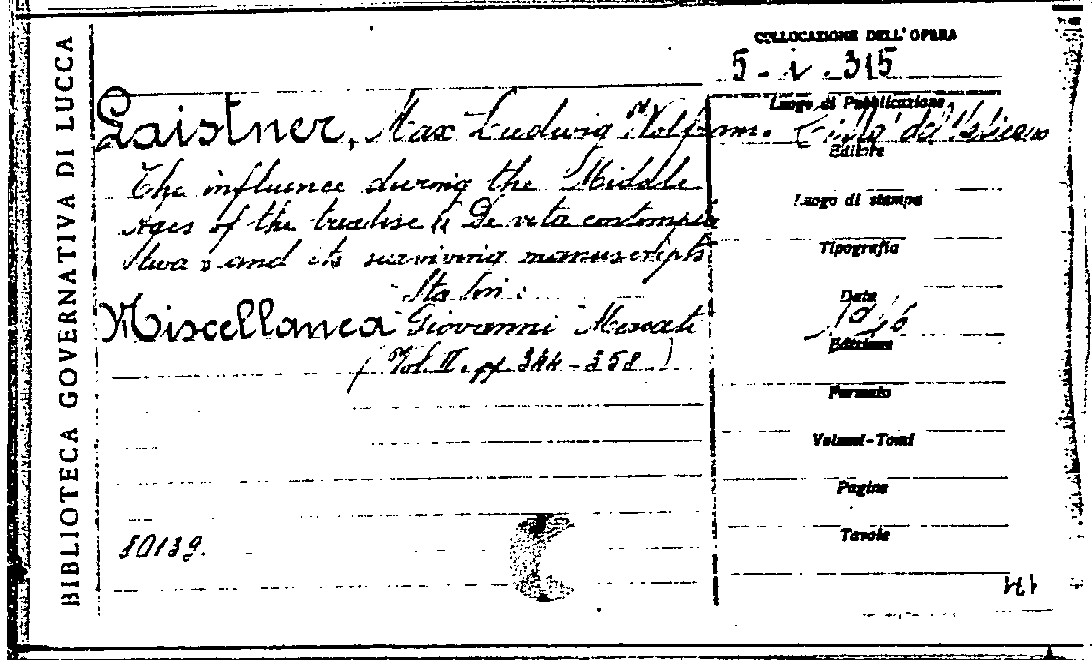 BIBLIOTECA GOVERNATIVA DI LUCCA
COLLOCAZIONE DELL'OPERA
5 - i . 315
Laistner, Max Ludwig Wolfram.
The influence during the Middle
Ages of the treatise « De vita contempla
tiva » and its surviving manuscripts
Sta in:
Miscellanea Giovanni Mercati
(Vol. II. pp. 344-358)
80139.
Luogo di Pubblicazione
Città del Vaticano
Editore
Luogo di stampa
Tipografia
Data
1946
Edizione
Formato
Volumi-Tomi
Pagine
Tavole